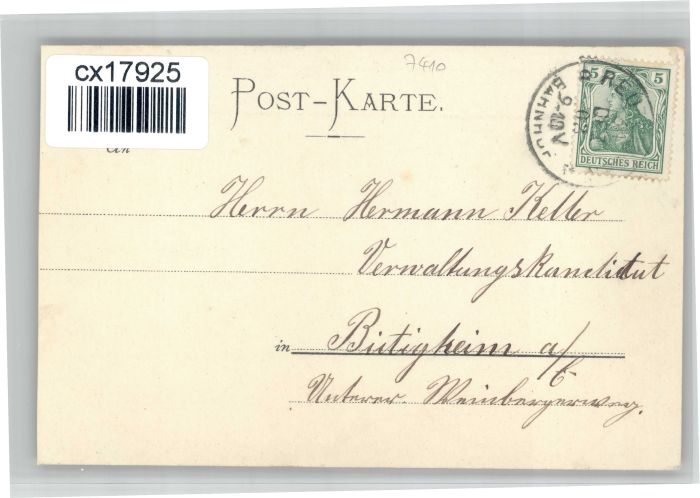 7410
cx17925
POST-KARTE.
An
5 5
DEUTSCHES REICH
BAHNHOF
9-10V
Herrn Hermann Keller
Verwaltungskandidat
in Bietigheim a/E
Unterer Weinbergerweg.